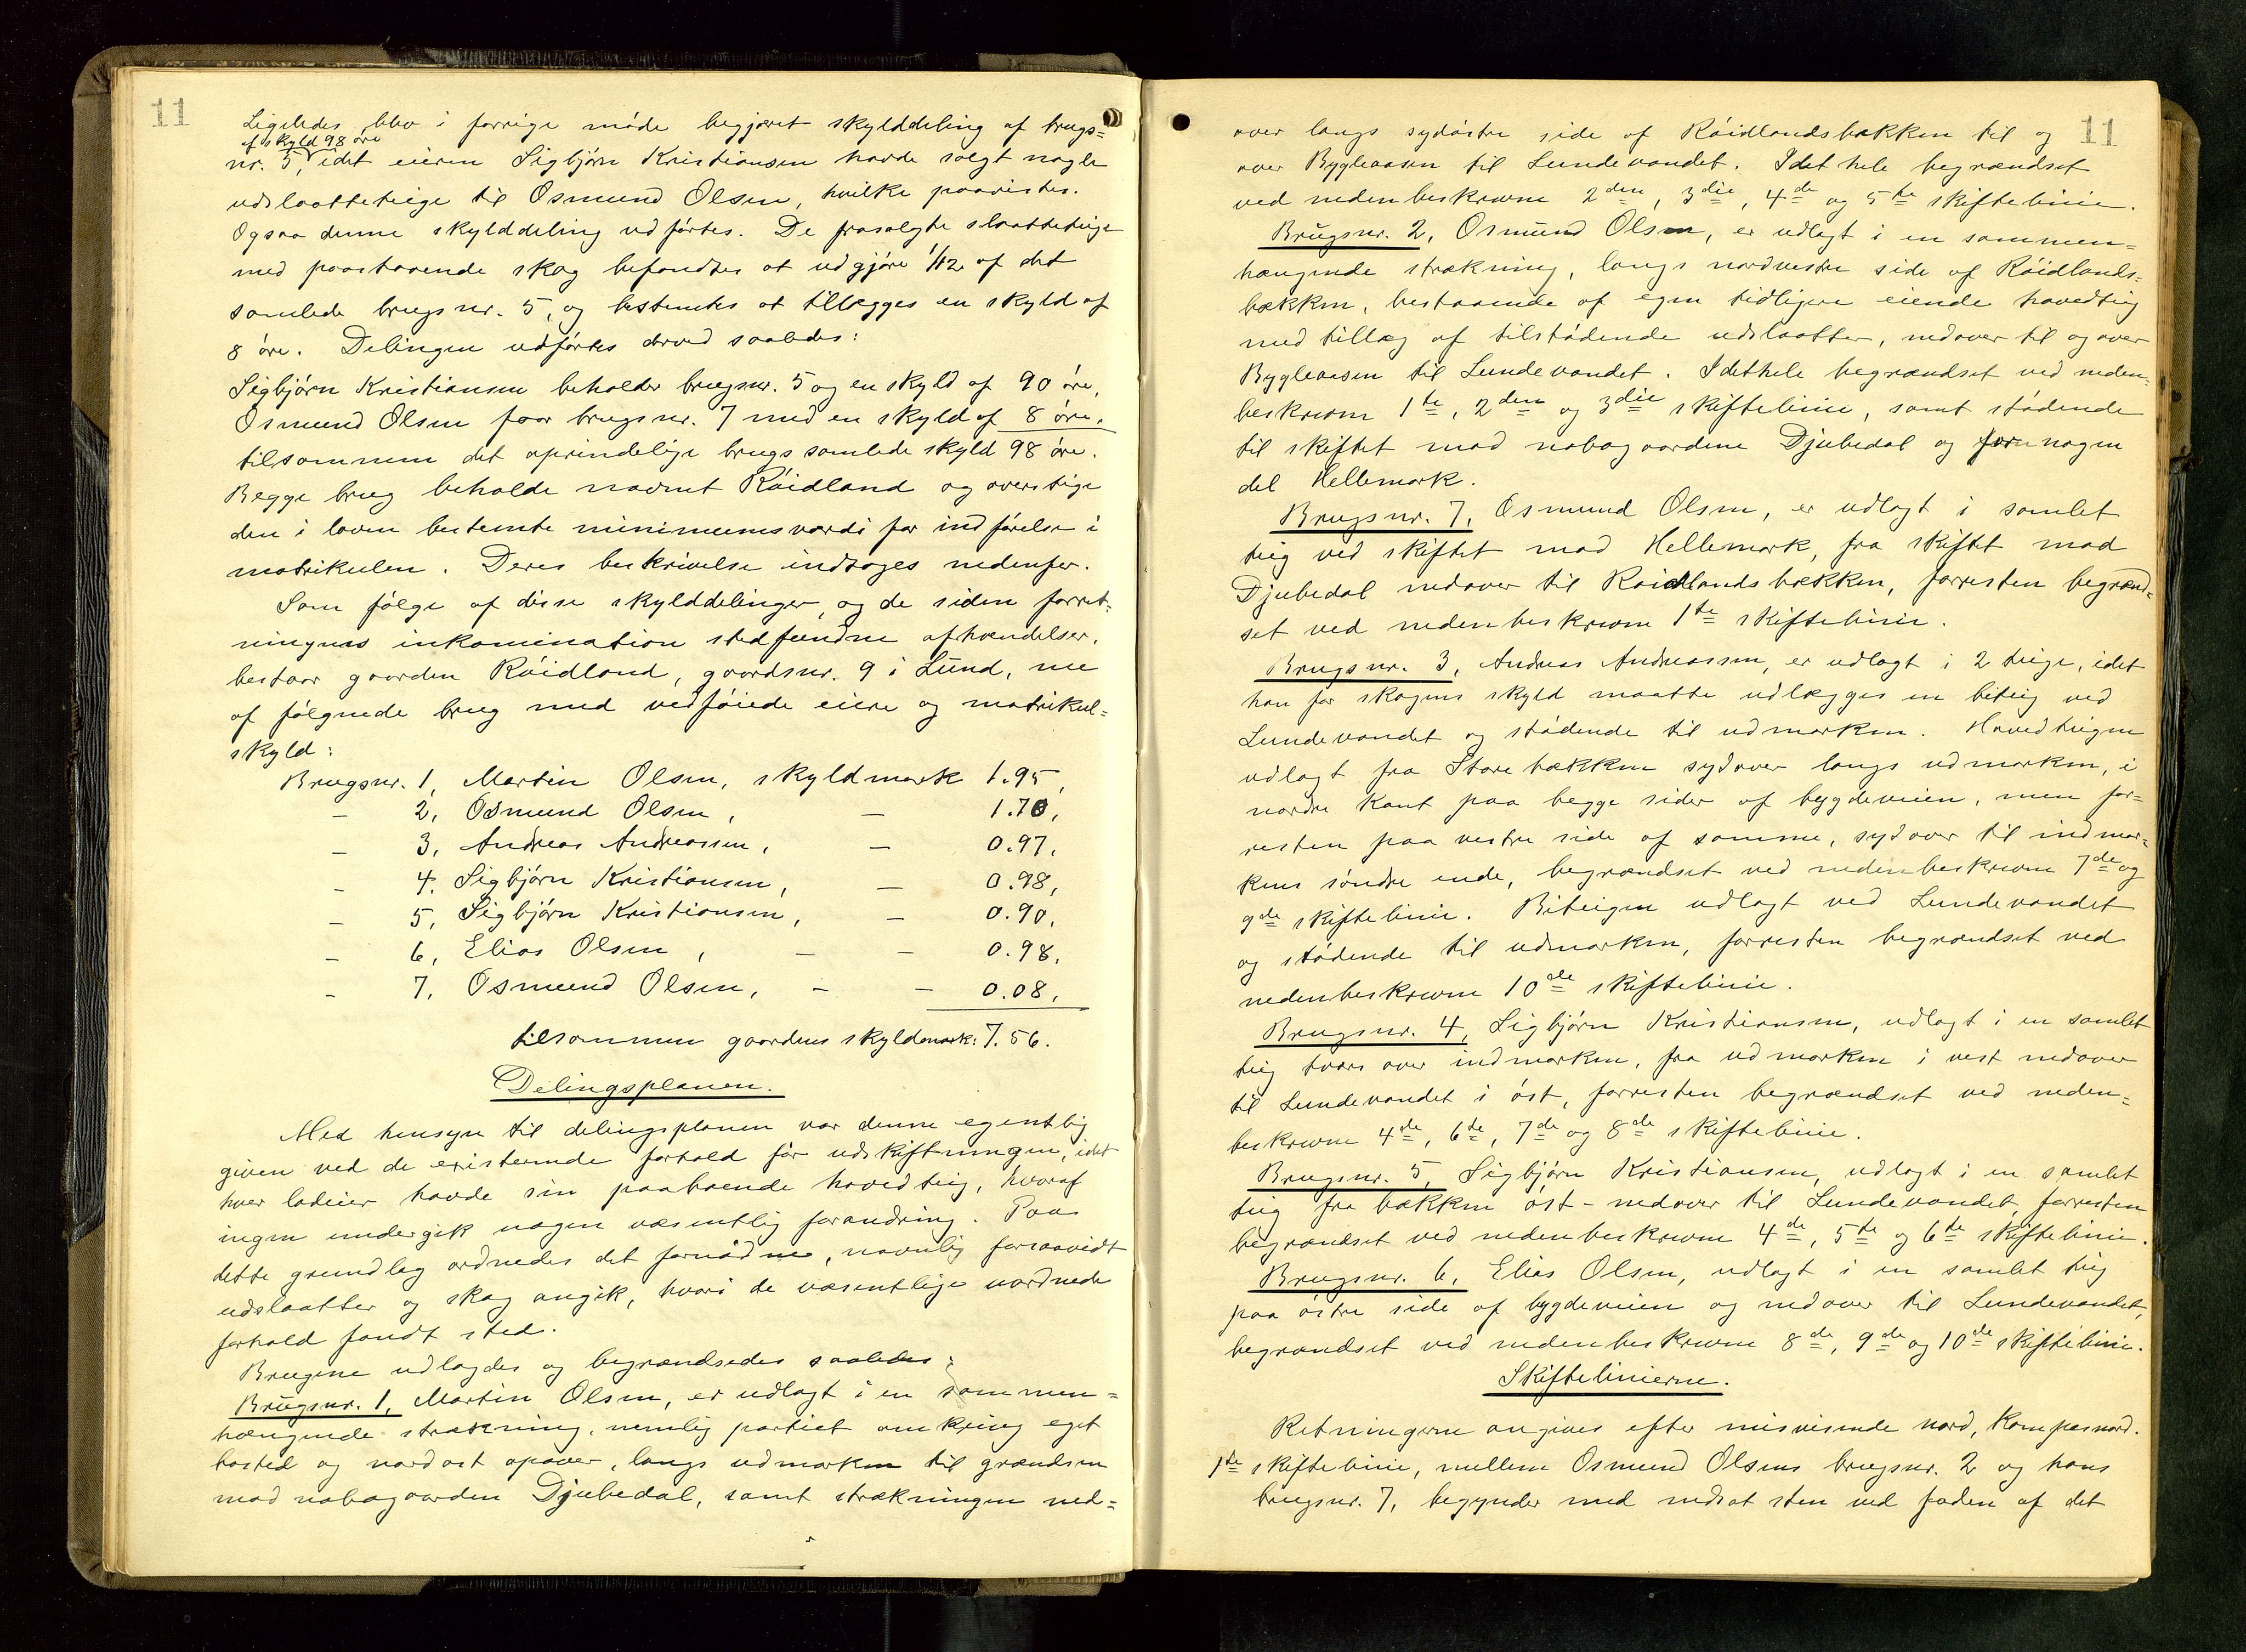 11
Ligeledes blev i forrige möde begjæret skylddeling af brugs=
af skyld 98 öre
nr. 5, idet eieren Sigbjörn Kristiansen havde solgt nogle
udslaatteteige til Osmund Olsen, hvilke paavistes.
Ogsaa denne skylddeling udförtes. De frasolgte slaatteteige
med paastaaende skog befandtes at udgjöre 1/12 af det
samlede brugsnr. 5, og bestemtes at tillægges en skyld af
8 öre. Delingen udförtes derved saaledes:
Sigbjörn Kristiansen beholder brugsnr. 5 og en skyld af 90 öre,
Osmund Olsen faar brugsnr. 7 med en skyld af 8 öre,
tilsammen det oprindelige brugs samlede skyld 98 öre.
Begge brug beholde navnet Röidland og overstige
den i loven bestemte minimumsværdi for indförelse i
matrikulen. Deres beskrivelse indtages nedenfor.
Som fölge af disse skylddelinger, og de siden forret-
ningens inkamination stedfundne afhændelser,
bestaar gaarden Röidland, gaardsnr. 9 i Lund, nu
af fölgnede brug med vedföiede eiere og matrikul=
skyld:
Brugsnr. 1, Martin Olsen, skyldmark 1.95,
– 2, Osmund Olsen, – 1.70,
– 3, Andreas Andreassen, – 0.97,
– 4. Sigbjörn Kristiansen, – 0.98,
– 5, Sigbjörn Kristiansen, – 0.90,
– 6, Elias Olsen, – – 0.98,
– 7, Osmund Olsen, – – 0.08,
tilsammen gaardens skyldmark: 7.56.
Delingsplanen.
Med hensyn til delingsplanen var denne egentlig
given ved de existerende forhold för udskiftningen, idet
hver lodeier havde sin paaboende hovedteig, hvoraf
ingen undergik nogen væsentlig forandring. Paa
dette grundlag ordnedes det fornödne, navnlig forsaavidt
udslaatter og skog angik, hvori de væsentlige uordnede
forhold fandt sted.
Brugene udlagdes og begrændsedes saaledes:
Brugsnr. 1, Martin Olsen, er udlagt i en sammen=
hængende strækning, nemlig partiet omkring eget
bosted og nordost opover, langs udmarken til grændsen
mod nabogaarden Djubedal, samt strækningen ned=
11
over langs sydöstre side af Röidlandsbækken til og
over Bygleaasen til Lundevandet. Idethele begrændset
ved nedenbeskrevne 2den, 3die, 4de og 5te skiftelinie.
Brugsnr. 2, Osmund Olsen, er udlagt i en sammen=
hængende strækning, langs nordvestre side af Röidlands-
bækken, bestaaende af egen tidligere eiende hovedteig
med tillæg af tilstödende udslaatter, nedover til og over
Bygleaasen til Lundevandet. Idethele begrændset ved neden-
beskrevne 1te, 2den og 3die skiftelinie, samt stödende
til skiftet mod nabogaardene Djubedal og for nogen
del Hellemork.
Brugsnr. 7, Osmund Olsen, er udlagt i samlet
teig ved skiftet mod Hellemork, fra skiftet mod
Djubedal nedover til Roidlandsbækken, forresten begrænd=
set ved nedenbeskrevne 1te skiftelinie.
Brugsnr. 3, Andreas Andreassen, er udlagt i 2 teige, idet
han for skogens skyld maatte udlægges en biteig ved
Lundevandet og stödende til udmarken. Hovedteigen
udlagt fra Storebækken sydover langs udmarken, i
nordre kant paa begge sider af bygdeveien, men for-
resten paa vestre side af samme, sydover til indmar-
kens söndre ende, begrændset ved nedenbeskrevne 7de og
9de skiftelinie. Biteigen udlagt ved Lundevandet
og stödende til udmarken, forresten begrændset ved
nedenbeskrevne 10de skiftelinie.
Brugsnr. 4, Sigbjörn Kristiansen, udlagt i en samlet
teig tværs over indmarken, fra udmarken i vest nedover
til Lundevandet i öst, forresten begrændset ved neden-
beskrevne 4de, 6te, 7de og 8de skiftelinie.
Brugsnr. 5, Sigbjörn Kristiansen, udlagt i en samlet
teig fra bækken öst-nedover til Lundevandet, forresten
begrændset ved nedenbeskrevne 4de, 5te og 6te skiftelinie.
Brugsnr. 6, Elias Olsen, udlagt i en samlet teig
paa östre side af bygdeveien og nedover til Lundevandet,
begrændset ved nedenbeskrevne 8de, 9de og 10de skiftelinie.
Skiftelinierne.
Retningerne angives efter misvisende nord, kompasnord.
1te skiftelinie, mellem Osmund Olsens brugsnr. 2 og hans
brugsnr. 7, begynder med nedsat sten ved foden af det